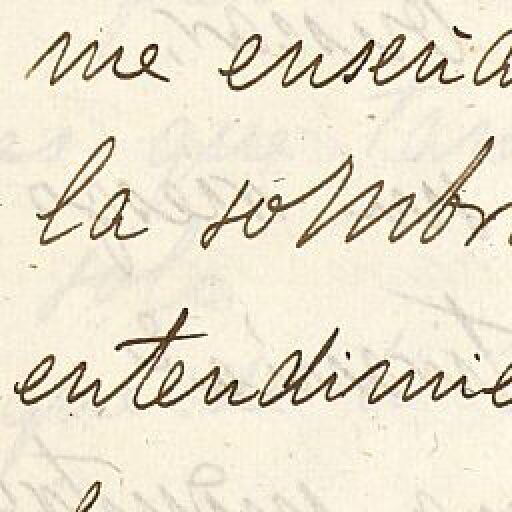 me enseña
la sombr
entendimie